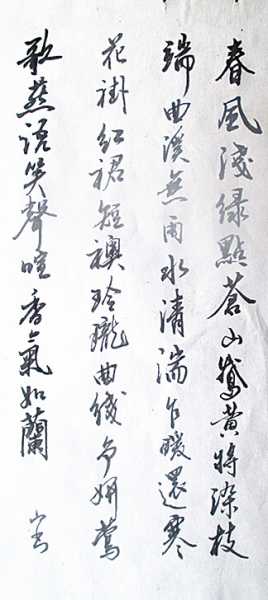 春風淺绿點蒼山鵞黄將染枝
端曲溪無雨水清湍乍暖還寒
花褂紅裙短襖玲瓏曲线争妍鶯
歌燕語笑聲喧香氣如蘭